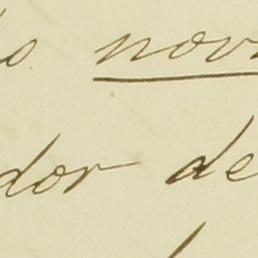 o nov
dor de